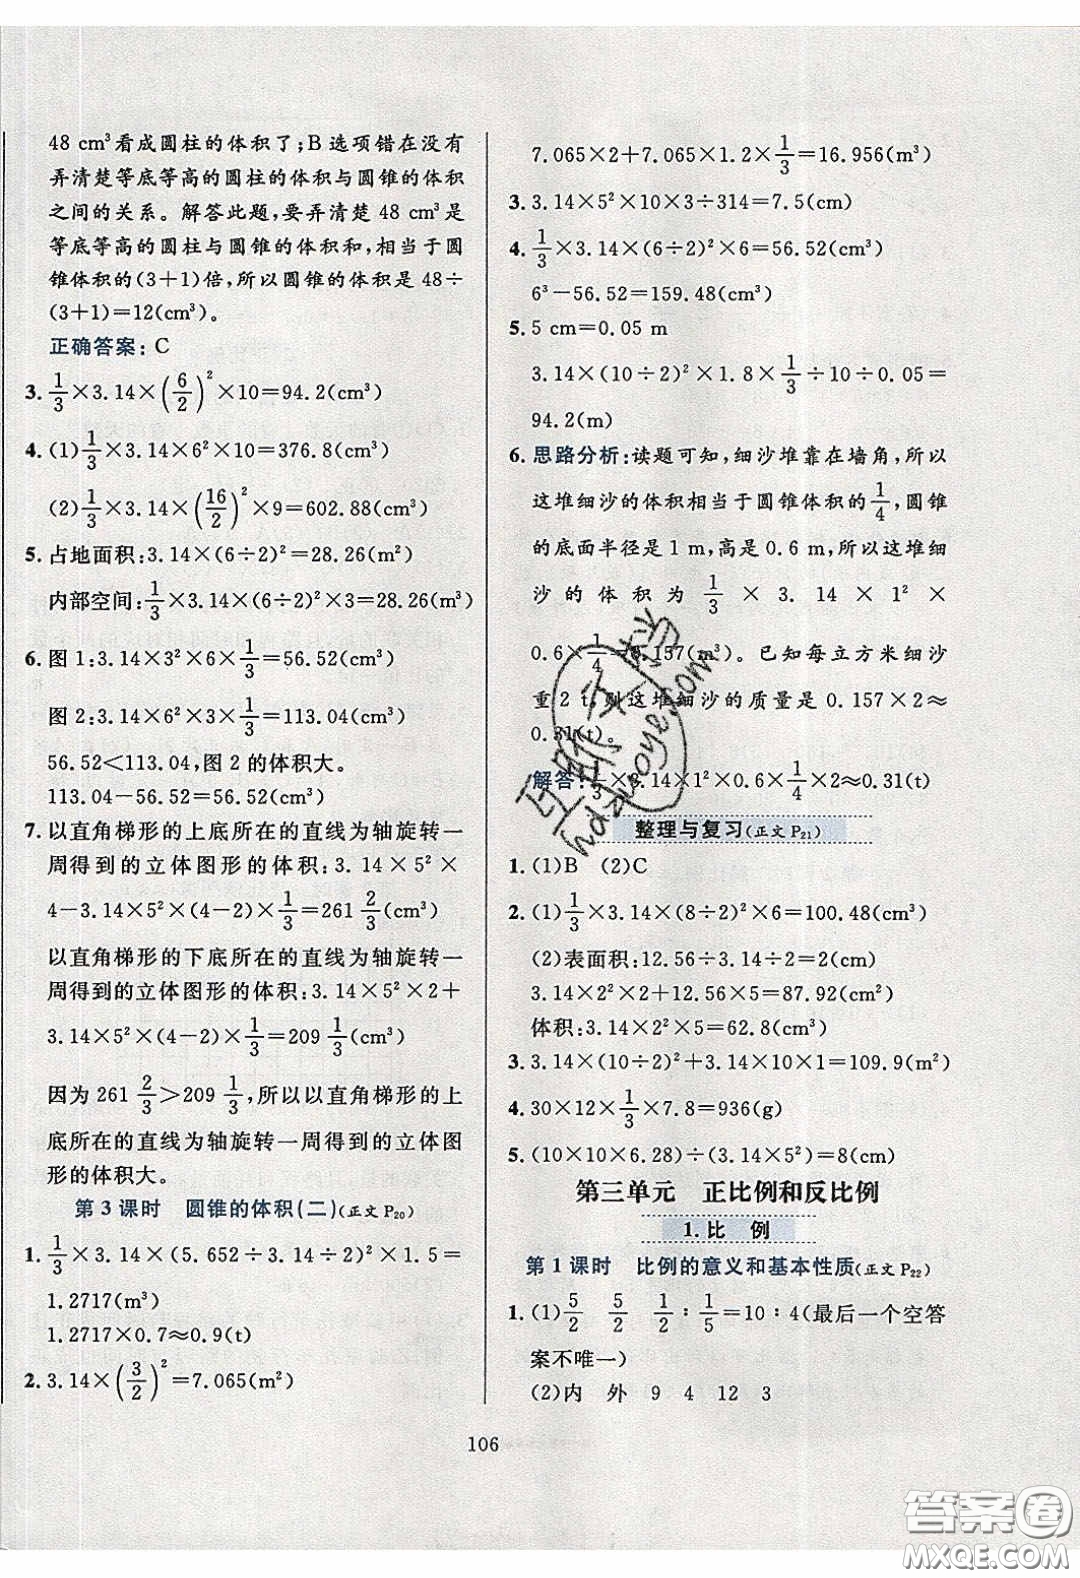 48 cm³看成圆柱的体积了;B 选项错在没有
弄清楚等底等高的圆柱的体积与圆锥的体积
之间的关系。解答此题,要弄清楚 48 cm³是
等底等高的圆柱与圆锥的体积和,相当于圆
锥体积的(3+1)倍,所以圆锥的体积是 48÷
(3+1)=12(cm³)。
正确答案:C
3. 1/3×3.14×(6/2)²×10=94.2(cm³)
4. (1)1/3×3.14×6²×10=376.8(cm³)
(2)1/3×3.14×(16/2)²×9=602.88(cm³)
5. 占地面积:3.14×(6÷2)²=28.26(m²)
内部空间:1/3×3.14×(6÷2)²×3=28.26(m³)
6. 图 1:3.14×3²×6×1/3=56.52(cm³)
图 2:3.14×6²×3×1/3=113.04(cm³)
56.52<113.04,图 2 的体积大。
113.04-56.52=56.52(cm³)
7. 以直角梯形的上底所在的直线为轴旋转一
周得到的立体图形的体积:3.14×5²×
4-3.14×5²×(4-2)×1/3=261 2/3(cm³)
以直角梯形的下底所在的直线为轴旋转一
周得到的立体图形的体积:3.14×5²×2+
3.14×5²×(4-2)×1/3=209 1/3(cm³)
因为 261 2/3>209 1/3,所以以直角梯形的上
底所在的直线为轴旋转一周得到的立体图
形的体积大。
第 3 课时 圆锥的体积(二)(正文 P20)
1. 1/3×3.14×(5.652÷3.14)×1.5=
1.2717(m³)
1.2717×0.7≈0.9(t)
2. 3.14×(3/2)²=7.065(m²)
7.065×2+7.065×1.2×1/3=16.956(m³)
3. 3.14×5²×10×3÷314=7.5(cm)
4. 1/3×3.14×(6÷2)²×6=56.52(cm³)
6³-56.52=159.48(cm³)
5. 5 cm=0.05 m
3.14×(10÷2)²×1.8×1/3÷10÷0.05=
94.2(m)
6. 思路分析:读题可知,细沙堆靠在墙角,所以
这堆细沙的体积相当于圆锥体积的1/4,圆锥
的底面半径是 1 m,高是 0.6 m,所以这堆细
沙的体积为 1/3 × 3.14 × 1² ×
0.6×1/4=0.157(m³)。已知每立方米细沙
重 2 t,则这堆细沙的质量是 0.157×2≈
0.31(t)。
解答:1/3×3.14×1²×0.6×1/4×2≈0.31(t)
整理与复习(正文 P21)
1. (1)B (2)C
2. (1)1/3×3.14×(8÷2)²×6=100.48(cm³)
(2)表面积:12.56÷3.14÷2=2(cm)
3.14×2²×2+12.56×5=87.92(cm²)
体积:3.14×2²×5=62.8(cm³)
3. 3.14×(10÷2)²+3.14×10×1=109.9(m²)
4. 30×12×1/3×7.8=936(g)
5. (10×10×6.28)÷(3.14×5²)=8(cm)
第三单元 正比例和反比例
1. 比 例
第 1 课时 比例的意义和基本性质(正文 P22)
1. (1)5/2 5/2 1/2:1/5=10:4(最后一个空答
案不唯一)
(2)内 外 9 4 12 3
106
互联文档
hdzuoye.com
答案圈
MXQE.COM